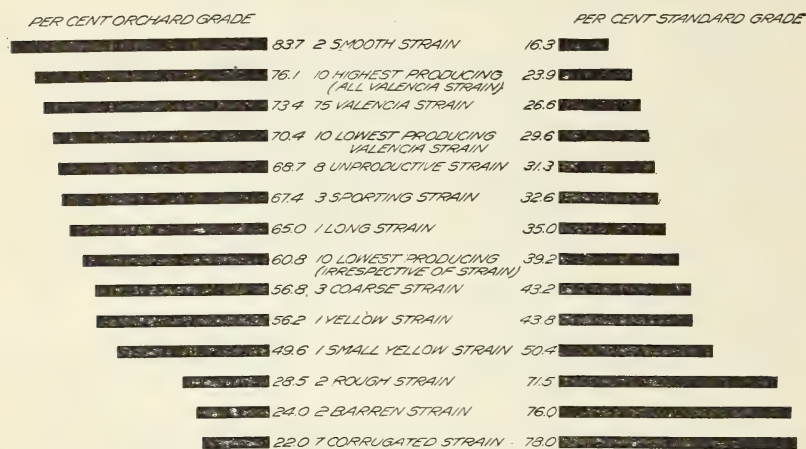 PER CENT ORCHARD GRADE PER CENT STANDARD GRADE
83.7 2 SMOOTH STRAIN 16.3
76.1 10 HIGHEST PRODUCING 23.9
(ALL VALENCIA STRAIN)
73.4 75 VALENCIA STRAIN 26.6
70.4 10 LOWEST PRODUCING 29.6
VALENCIA STRAIN
68.7 8 UNPRODUCTIVE STRAIN 31.3
67.4 3 SPORTING STRAIN 32.6
65.0 1 LONG STRAIN 35.0
60.8 10 LOWEST PRODUCING 39.2
(IRRESPECTIVE OF STRAIN)
56.8 3 COARSE STRAIN 43.2
56.2 1 YELLOW STRAIN 43.8
49.6 1 SMALL YELLOW STRAIN 50.4
28.5 2 ROUGH STRAIN 71.5
24.0 2 BARREN STRAIN 76.0
22.0 7 CORRUGATED STRAIN 78.0